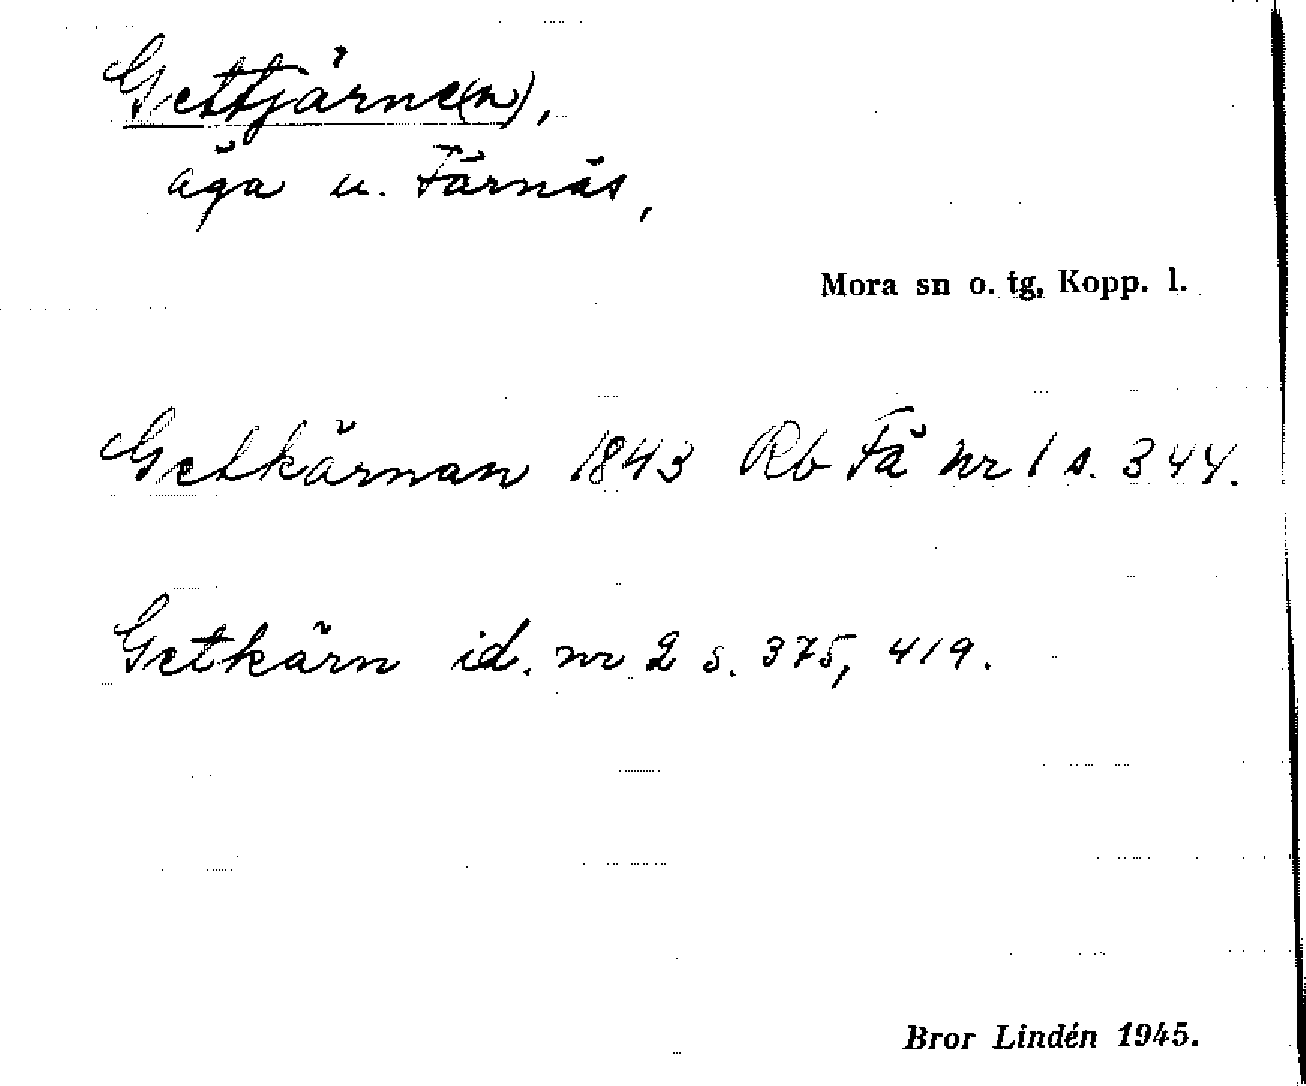 Gettjärne(n),
äga u. Färnäs,
Mora sn o. tg, Kopp. l.
Getkärnan 1843 Rb Fä nr 1 s. 344.
Getkärn id. nr 2 s. 375, 419.
Bror Lindén 1945.